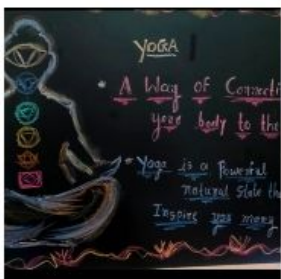 YOGA
• A Way of Connecti
your body to the
* Yoga is a Powerful
natural state th
Inspire you many